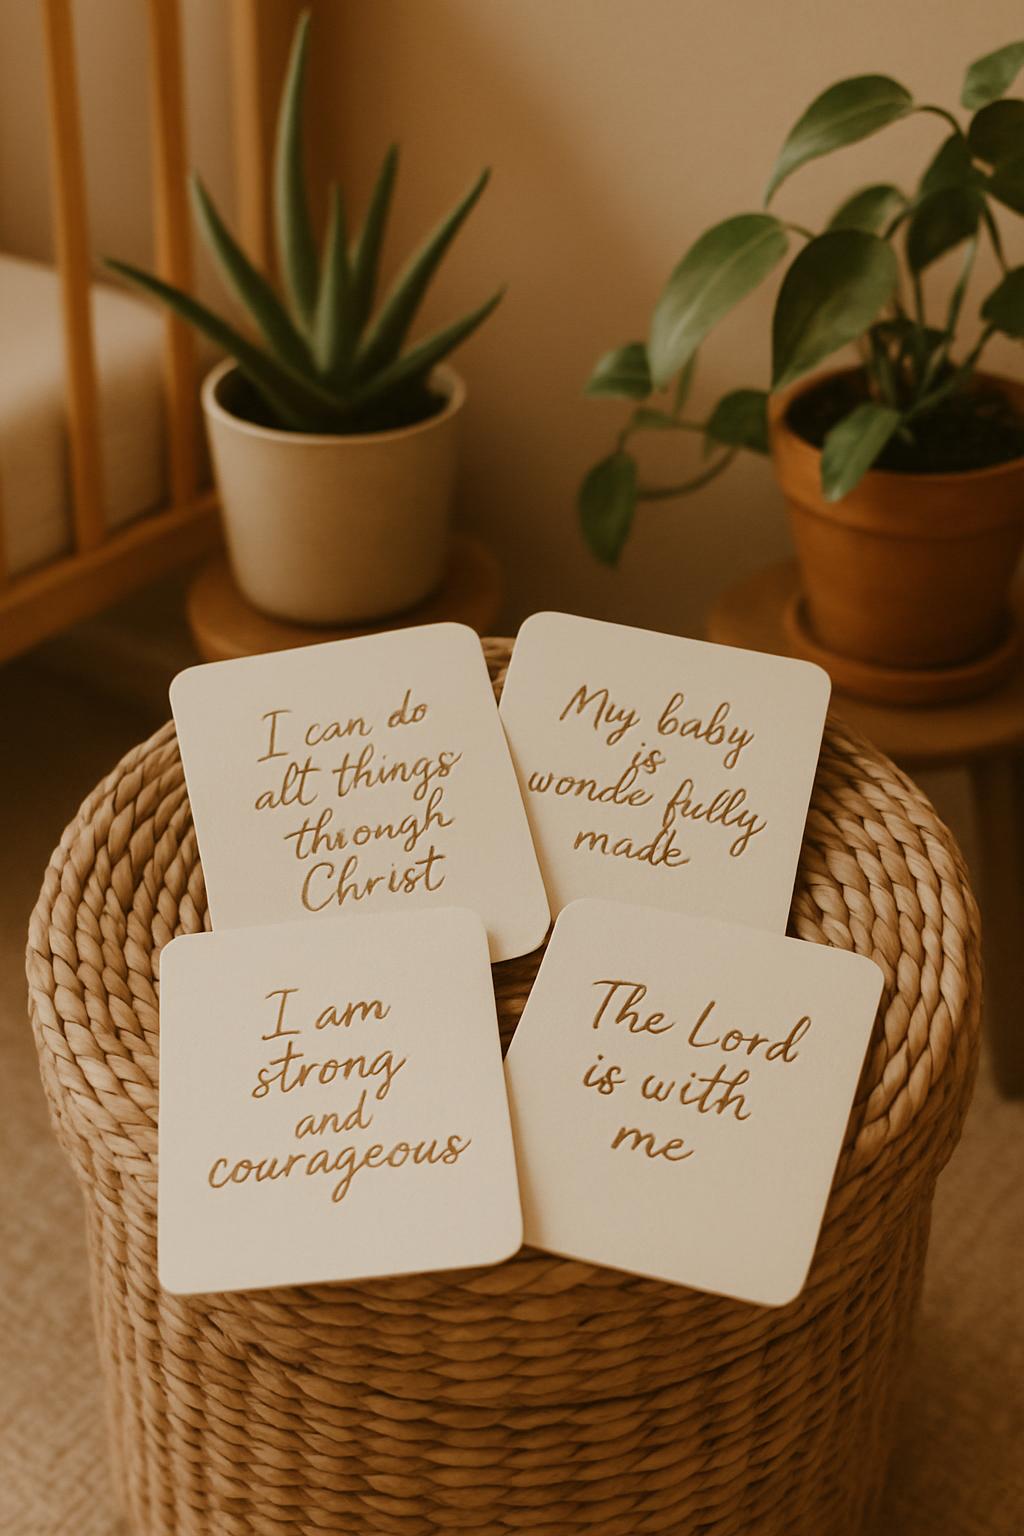 I can do
alt things
thiongh
Christ
Miy baby
is
wonde fully
made
I am
strong
and
courageous
The Lord
is with
me